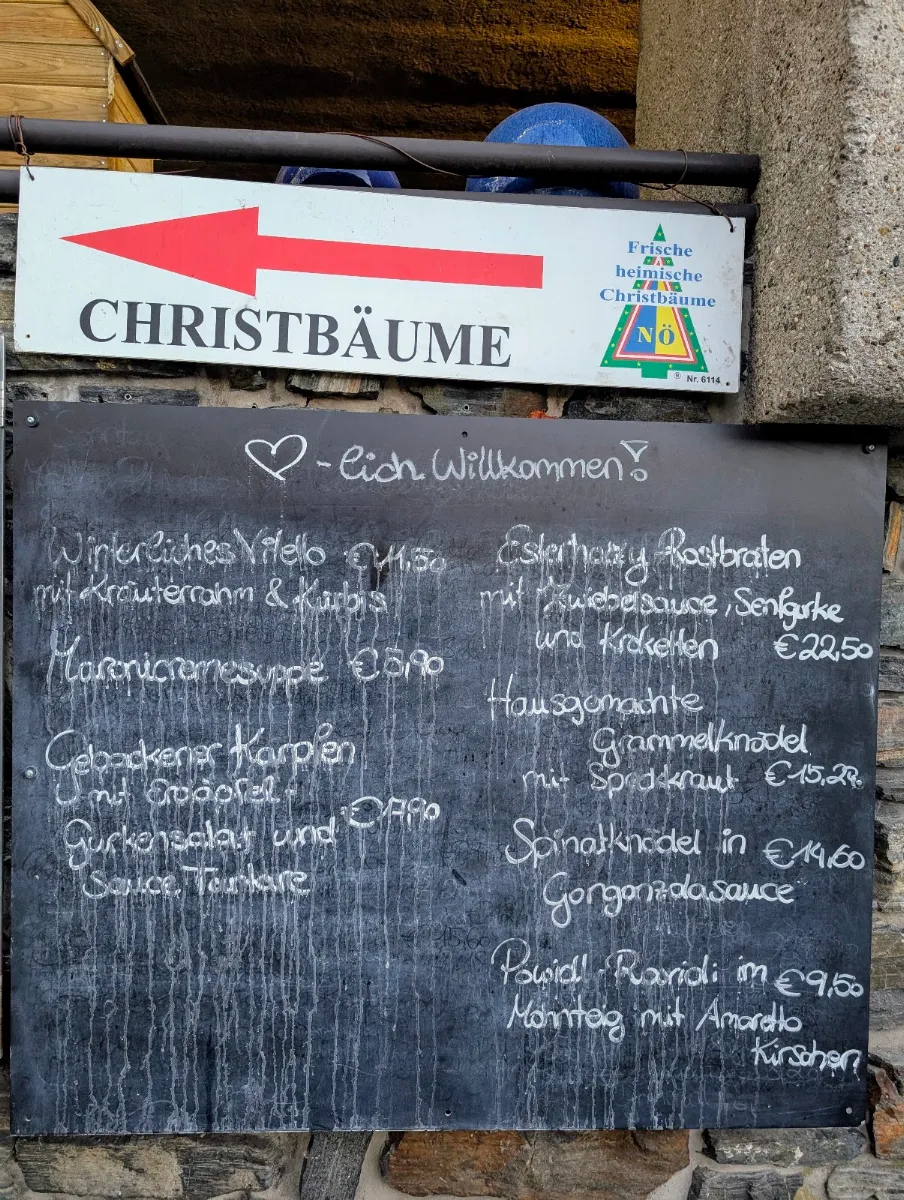 CHRISTBÄUME
Frische
heimische
Christbäume
NÖ
® Nr. 6114
♡-lich Willkommen!
Winterliches Vitello €11,50
mit Kräuterrahm & Kürbis
Maronicremesuppe €5,90
Gebackener Karpfen
mit Erdäpfel-
€17,90
Gurkensalat und
Sauce Tartare
Esterhazy Rostbraten
mit Zwiebelsauce, Senfgurke
und Kroketten €22,50
Hausgemachte
Grammelknödel
mit Speckkraut €15,20
Spinatknödel in €14,60
Gorgonzolasauce
Powidl-Ravioli im €9,50
Mohnteig mit Amaretto
Kirschen